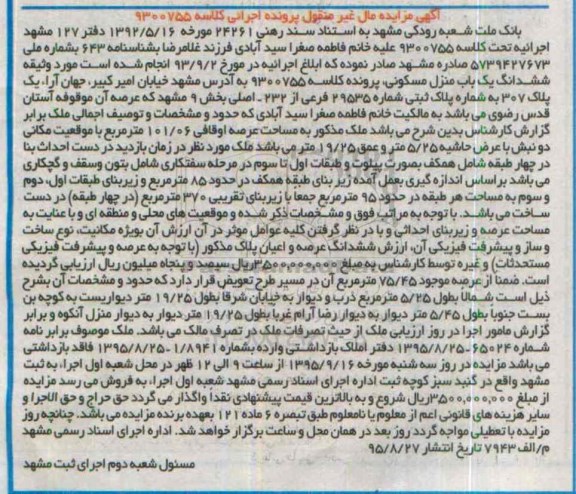 آگهی مزایده مال غیر منقول پرونده اجرائی کلاسه ۹۳۰۰۷۵۵
بانک ملت شعبه رودکی مشهد به استناد سند رهنی ۲۴۲۶۱ مورخه ۱۳۹۲/۵/۱۶ دفتر ۱۲۷ مشهد
اجرائیه تحت کلاسه ۹۳۰۰۷۵۵ علیه خانم فاطمه صغرا سید آبادی فرزند غلامرضا بشناسنامه ۶۴۳ بشماره ملی
۵۷۳۹۴۲۷۶۷۳ صادره مشهد صادر نموده که ابلاغ اجرائیه در مورخ ۹۳/۹/۲ انجام شده است مورد وثیقه
ششدانگ یک باب منزل مسکونی، پرونده کلاسه ۹۳۰۰۷۵۵ به آدرس مشهد خیابان امیر کبیر، جهان آرا، یک
پلاک ۳۰۷ به شماره پلاک ثبتی شماره ۲۹۵۳۵ فرعی از ۲۳۲ - اصلی بخش ۹ مشهد که عرصه آن موقوفه آستان
قدس رضوی می باشد به مالکیت خانم فاطمه صغرا سید آبادی که حدود و مشخصات و توصیف اجمالی ملک برابر
گزارش کارشناس بدین شرح می باشد ملک مذکور به مساحت عرصه اوقافی ۱۰۱/۰۶ مترمربع با موقعیت مکانی
دو نبش با عرض حاشیه ۵/۲۵ متر و عمق ۱۹/۲۵ متر می باشد ملک مورد نظر در زمان بازدید در دست احداث بنا
در چهار طبقه شامل همکف بصورت پیلوت و طبقات اول تا سوم در مرحله سفتکاری شامل بتون وسقف و گچکاری
می باشد براساس اندازه گیری بعمل آمده زیر بنای طبقه همکف در حدود ۸۵ مترمربع و زیربنای طبقات اول، دوم
و سوم به مساحت هر طبقه در حدود ۹۵ مترمربع جمعا با زیربنای تقریبی ۳۷۰ مترمربع (در چهار طبقه) در دست
ساخت می باشد. با توجه به مراتب فوق و مشخصات ذکر شده و موقعیت های محلی و منطقه ای و با عنایت به
مساحت عرصه و زیربنای احداثی و با در نظر گرفتن کلیه عوامل موثر در آن ارزش آن بویژه مکانیت، نوع ساخت
و ساز و پیشرفت فیزیکی آن، ارزش ششدانگ عرصه و اعیان پلاک مذکور (با توجه به عرصه و پیشرفت فیزیکی
مستحدثات) و غیره توسط کارشناس به مبلغ ۳۵۰۰،۰۰۰،۰۰۰ریال سیصد و پنجاه میلیون ریال ارزیابی گردیده
است. ضمنا از عرصه موجود ۷۵/۴۵ مترمربع آن در مسیر طرح تعویض قرار دارد که حدود و مشخصات آن بشرح
ذیل است شمالا بطول ۵/۲۵ مترمربع درب و دیوار به خیابان شرقا بطول ۱۹/۲۵ متر دیواریست به کوچه بن
بست جنوبا بطول ۵/۴۵ متر دیوار به دیوار رضا آرام غربا بطول ۱۹/۲۵ متر دیوار به دیوار منزل آنکوه و برابر
گزارش مامور اجرا در روز ارزیابی ملک از حیث تصرفات ملک در تصرف مالک می باشد. ملک موصوف برابر نامه
شماره ۶۵۰۲۴-۱۳۹۵/۸/۲۵ دفتر املاک بازداشتی وارده بشماره ۱/۸۹۴۱-۱۳۹۵/۸/۲۵ فاقد بازداشتی
می باشد مزایده در روز سه شنبه مورخه ۱۳۹۵/۹/۱۶ از ساعت ۹ الی ۱۲ ظهر در محل شعبه اول اجرا، به ثبت
مشهد واقع در گنبد سبز کوچه ثبت اداره اجرای اسناد رسمی مشهد شعبه اول اجرا، به فروش می رسد مزایده
از مبلغ ۳۵۰۰،۰۰۰،۰۰۰ریال شروع و به بالاترین قیمت پیشنهادی نقدا واگذار می گردد حق حراج و حق الاجرا و
سایر هزینه های قانونی اعم از معلوم یا نامعلوم طبق تبصره ۶ ماده ۱۲۱ بعهده برنده مزایده می باشد. چنانچه روز
مزایده با تعطیلی مواجه گردد روز بعد در همان محل و ساعت برگزار خواهد شد. اداره اجرای اسناد رسمی مشهد
م/الف ۷۹۴۳ تاریخ انتشار ۹۵/۸/۲۷
مسئول شعبه دوم اجرای ثبت مشهد